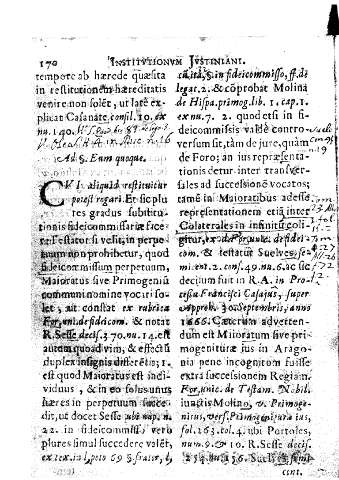 170 INSTITUTIONUM JUSTINIANI.
tempore ab hærede quæsita
in restitutionem hæreditatis
venire non solet, ut late ex-
plicat Casanate consil. 10. ex
nu. 140.
Ad §. Eum quoque.
CUI aliquid restituitur
potest rogari. Et sic plu-
res gradus substitu-
tionis fideicommissariæ face-
re Testator si velit, in perpe-
tuum non prohibetur, quod
fideicommissum perpetuum,
Maioratus sive Primogenii
communi nomine vocari so-
let, ut constat ex rubrica
For. un. de fideicom. & notat
R. Sesse deci. 270. nu. 14. est
autem quoad vim, & effectū
duplex insignis differētia; 1.
est quod Maioratus est indi-
viduus, & in eo solus unus
hæres in perpetuum succe-
dit, ut docet Sesse ubi sup. n.
22. in fideicommisso vero
plures simul succedere valēt,
ex tex. in l. peto 69 §. frater, ff.
cū ita, §. in fideicommisso, ff. de
legat. 2. & cōprobat Molina
de Hispa. primog. lib. 1. cap. 1.
ex nu. 7. 2. quod etsi in fi-
deicommissis valdè contro-
versum sit, tàm de jure, quàm
de Foro; an ius repræsenta-
tionis detur inter transver-
sales ad successionē vocatos;
tamē in Maioratibus adesse
repræsentationem etiā inter
Collaterales in infinitū coli-
gitur, ex d. For. unic. de fidei
com. & testatur Suelves se-
mi ent. 2. cons. 49. nu. 6. ac sic
decisum fuit in R. A. in Pro-
cessu Francisci Casajus, super
Approh. 30. Septembris, anno
1666. Cæterum advertten-
dum est Maioratum sive pri-
mogenituræ ius in Arago-
nia penè incognitum fuisse
extra successionem Regiam.
For. unic. de Testam. Nobil.
iunctis Molino, v. Primoge-
nitus, vers. Primogenitura ius,
fol. 263. col. 4. ubi Portoles,
num. 9. & 10. R. Sesse decis.
cent.